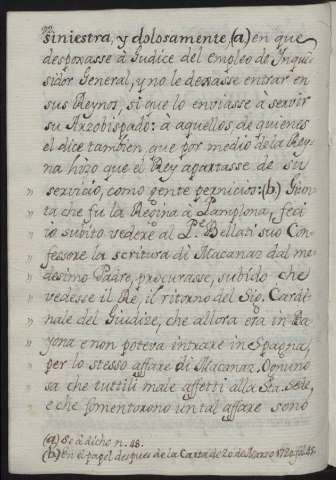 siniestra, y dolosamente, (a) en que
despojasse à Giudice del empleo de Inqui-
sidor General, y no le dexasse entrar en
sus Reynos, si que lo enviasse à servir
su Arzobispado: à aquellos, de quienes
el dice tambien que por medio de la Rey-
na hizo que el Rey apartasse de su
" servicio, como gente perniciosa: (b) Giun-
" ta che fu la Regina à Pamplona, feci
" io subito vedere al P.e Bellati suo Con-
" fessore la scritura di Macanaz dal me-
" desimo Padre, procurasse, subido che
" vedesse il Re, il ritorno del Sig. Cardi-
" nale del Giudize, che allora era in Ba-
" yona e non poteva intrare in Spagna,
" per lo stesso affare di Macanaz. Ognuno
" sa che tutti li male affetti alla Sta. Sede,
" e che fomentorono un tal affare sono
(a) Se à dicho n. 48.
(b) En el papel despues de la Carta de 20 de Marzo 1720 fol. 45.